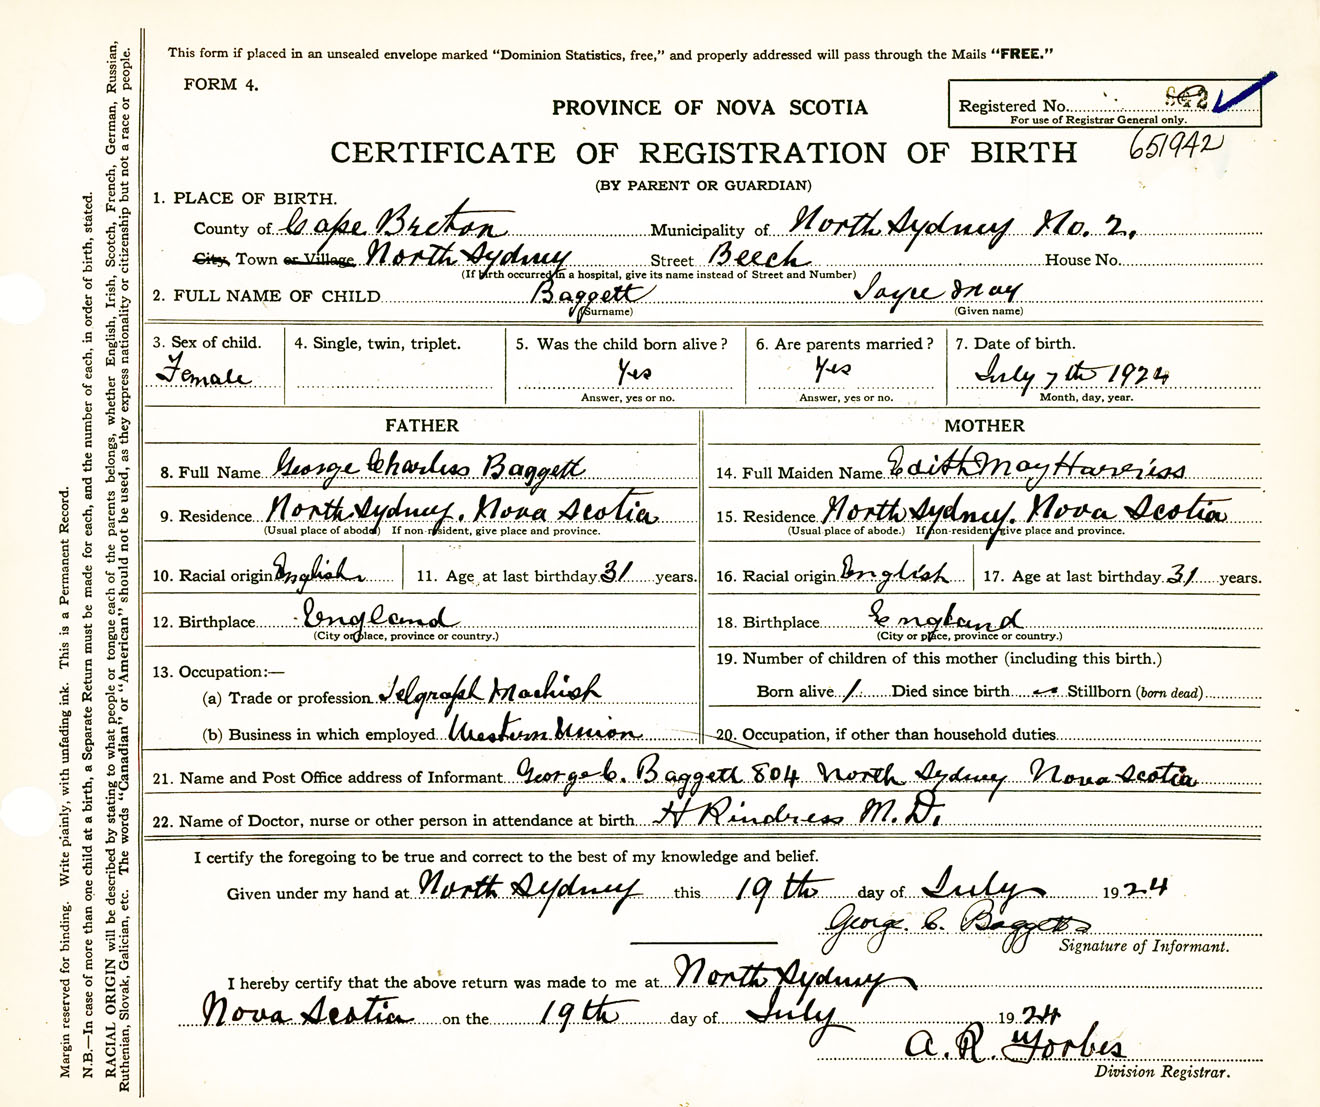 This form if placed in an unsealed envelope marked “Dominion Statistics, free,” and properly addressed will pass through the Mails “FREE.”
FORM 4.
Registered No.
For use of Registrar General only.
651942
PROVINCE OF NOVA SCOTIA
CERTIFICATE OF REGISTRATION OF BIRTH
(BY PARENT OR GUARDIAN)
1. PLACE OF BIRTH.
County of Cape Breton Municipality of North Sydney No. 2.
City, Town or Village North Sydney Street Beech House No.
(If birth occurred in a hospital, give its name instead of Street and Number)
2. FULL NAME OF CHILD Baggett Joyce May
(Surname) (Given name)
3. Sex of child. 4. Single, twin, triplet. 5. Was the child born alive? 6. Are parents married? 7. Date of birth.
Female Yes Yes July 7th 1924
Answer, yes or no. Answer, yes or no. Month, day, year.
FATHER MOTHER
8. Full Name George Charless Baggett 14. Full Maiden Name Edith May Harriss
9. Residence North Sydney. Nova Scotia 15. Residence North Sydney. Nova Scotia
(Usual place of abode) If non-resident, give place and province. (Usual place of abode.) If non-resident, give place and province.
10. Racial origin English 11. Age at last birthday 31 years. 16. Racial origin English 17. Age at last birthday 31 years.
12. Birthplace England 18. Birthplace England
(City or place, province or country.) (City or place, province or country.)
19. Number of children of this mother (including this birth.)
13. Occupation:—
(a) Trade or profession Telgraph Machish Born alive 1 Died since birth — Stillborn (born dead)
(b) Business in which employed Western Union 20. Occupation, if other than household duties
21. Name and Post Office address of Informant George C. Baggett 804 North Sydney Nova Scotia
22. Name of Doctor, nurse or other person in attendance at birth H Rindress M.D.
I certify the foregoing to be true and correct to the best of my knowledge and belief.
Given under my hand at North Sydney this 19th day of July 1924
George. C. Baggett
Signature of Informant.
I hereby certify that the above return was made to me at North Sydney
Nova Scotia on the 19th day of July 1924
A. R. Forbes
Division Registrar.
Margin reserved for binding. Write plainly, with unfading ink. This is a Permanent Record.
N.B.—In case of more than one child at a birth, a Separate Return must be made for each, and the number of each, in order of birth, stated.
RACIAL ORIGIN will be described by stating to what people or tongue each of the parents belongs, whether English, Irish, Scotch, French, German, Russian,
Ruthenian, Slovak, Galician, etc. The words “Canadian” or “American” should not be used, as they express nationality or citizenship but not a race or people.